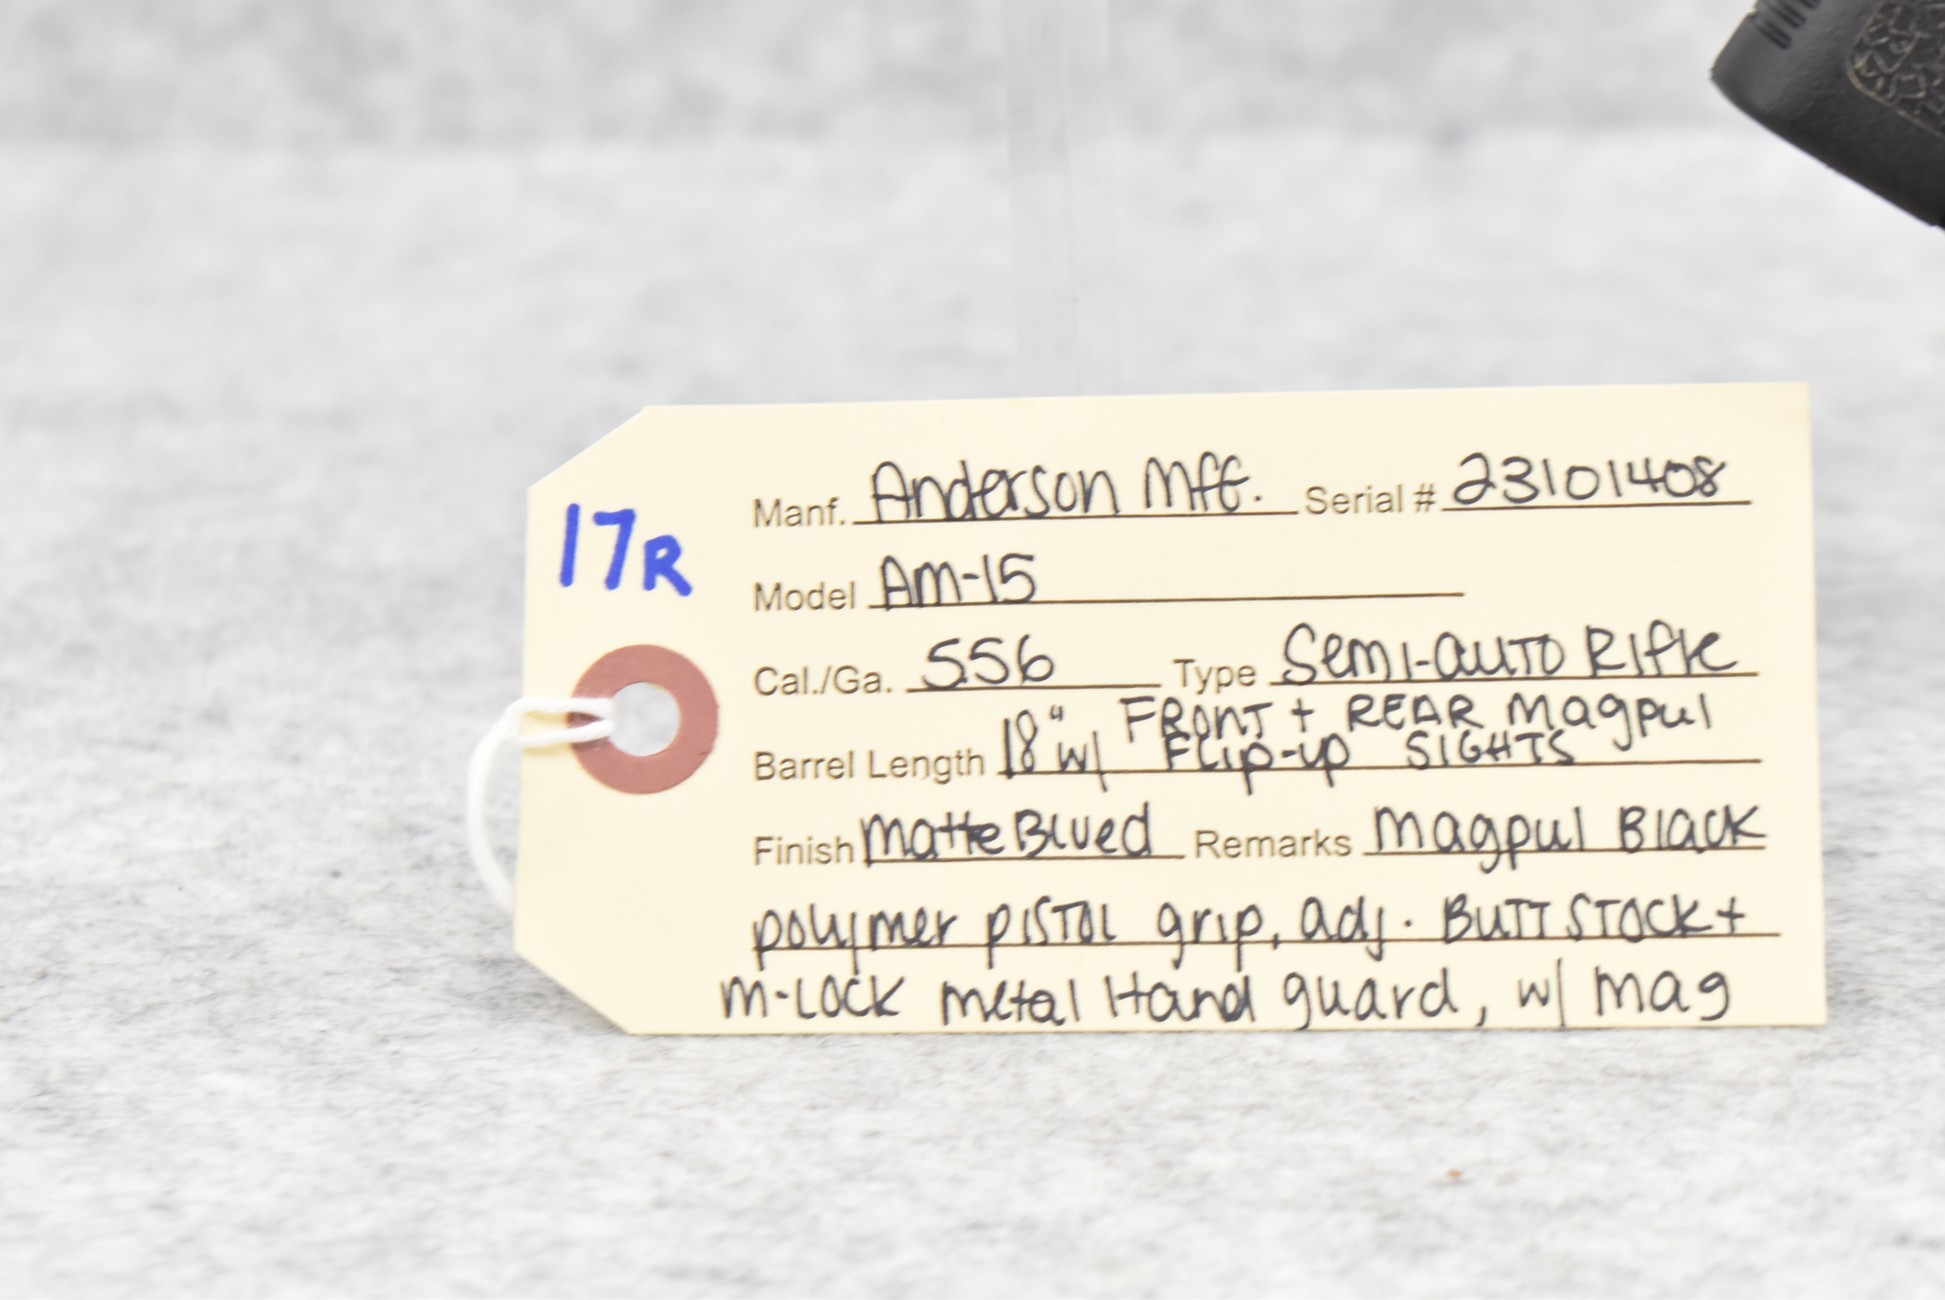 17R
Manf. Anderson Mfg. Serial # 23101408
Model AM-15
Cal./Ga. 556 Type Semi-Auto Rifle
Barrel Length 18" w/ FRONT + REAR Magpul
FLIP-UP SIGHTS
Finish Matte Blued Remarks Magpul Black
polymer pistol grip, adj. BUTTSTOCK +
M-LOCK metal Hand guard, w/ mag